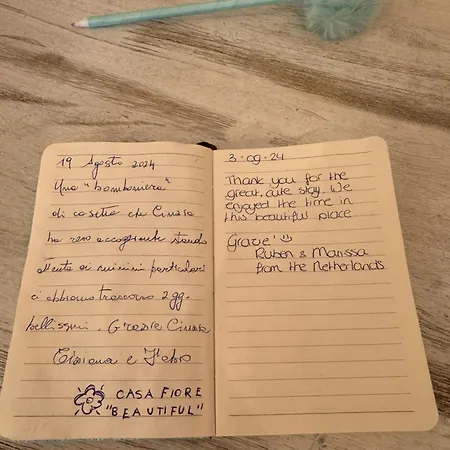 19 Agosto 2024
Una "bomboniera"
di casetta che
ha reso accogliente stando
attenta ai minimi particolari
ci abbiamo trascorso 2 gg.
bellissimi. Grazie
Tiziana e
CASA FIORE
"BEAUTIFUL"
3-09-24
Thank you for the
great, cute stay. We
enjoyed the time in
this beautiful place
Ruben & Marissa
from the Netherlands